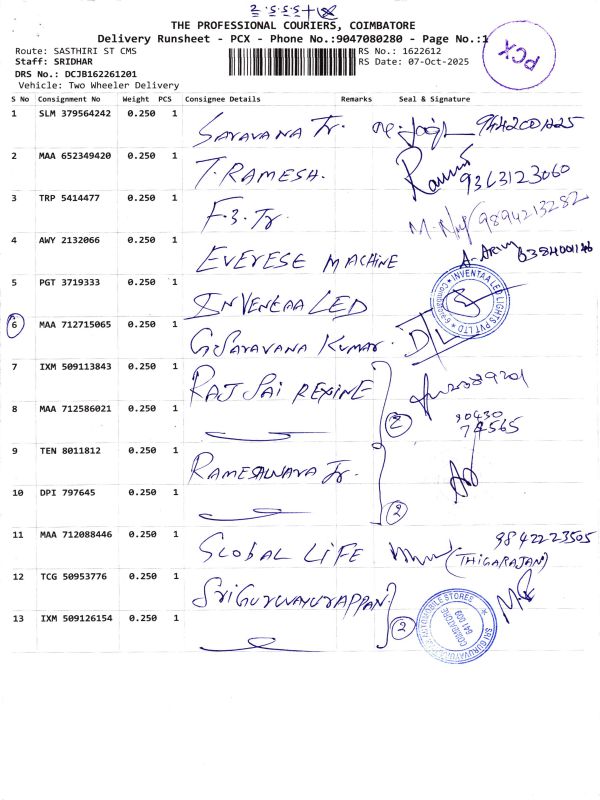 THE PROFESSIONAL COURIERS, COIMBATORE
Delivery Runsheet - PCX - Phone No.:9047080280 - Page No.:1
PCX
Route: SASTHIRI ST CMS
RS No.: 1622612
Staff: SRIDHAR
RS Date: 07-Oct-2025
DRS No.: DCJB162261201
Vehicle: Two Wheeler Delivery
S No Consignment No Weight PCS Consignee Details Remarks Seal & Signature
1 SLM 379564242 0.250 1 SARAVANA Tr.
2 MAA 652349420 0.250 1 T. RAMESH. 9363123060
3 TRP 5414477 0.250 1 F.3. Tr. 9894213282
4 AWY 2132066 0.250 1 EVERESE MACHINE
5 PGT 3719333 0.250 1 INVENTAA LED
INVENTAA LED LIGHTS PVT LTD
6 MAA 712715065 0.250 1 G. Saravana Kumar. D/L
7 IXM 509113843 0.250 1 RAJ SAI REXINE
8 MAA 712586021 0.250 1 2 90430
74565
9 TEN 8011812 0.250 1 RAMESHWARA Tr.
10 DPI 797645 0.250 1 2
11 MAA 712088446 0.250 1 GLOBAL LIFE 9842223505
(THIGARAJAN)
12 TCG 50953776 0.250 1 SRI GURUVAYURAPPAN
13 IXM 509126154 0.250 1 2
AUTOMOBILE STORES
COIMBATORE
641 009